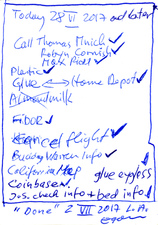 Today 28 VI 2017 and later
Call Thomas Minich ✓
Robyn Cornish ✓
Mark Pidl ✓
Plastic ✓
Glue ↔ Home Depot ✓
Almondmilk
FIDOR ✓
Cancel flight ✓
Buddy Warren Info ✓
California Map glue express
Coinbase ✓
Jos. check info + bed info ✓
"Done" 2 VII 2017 L.A.